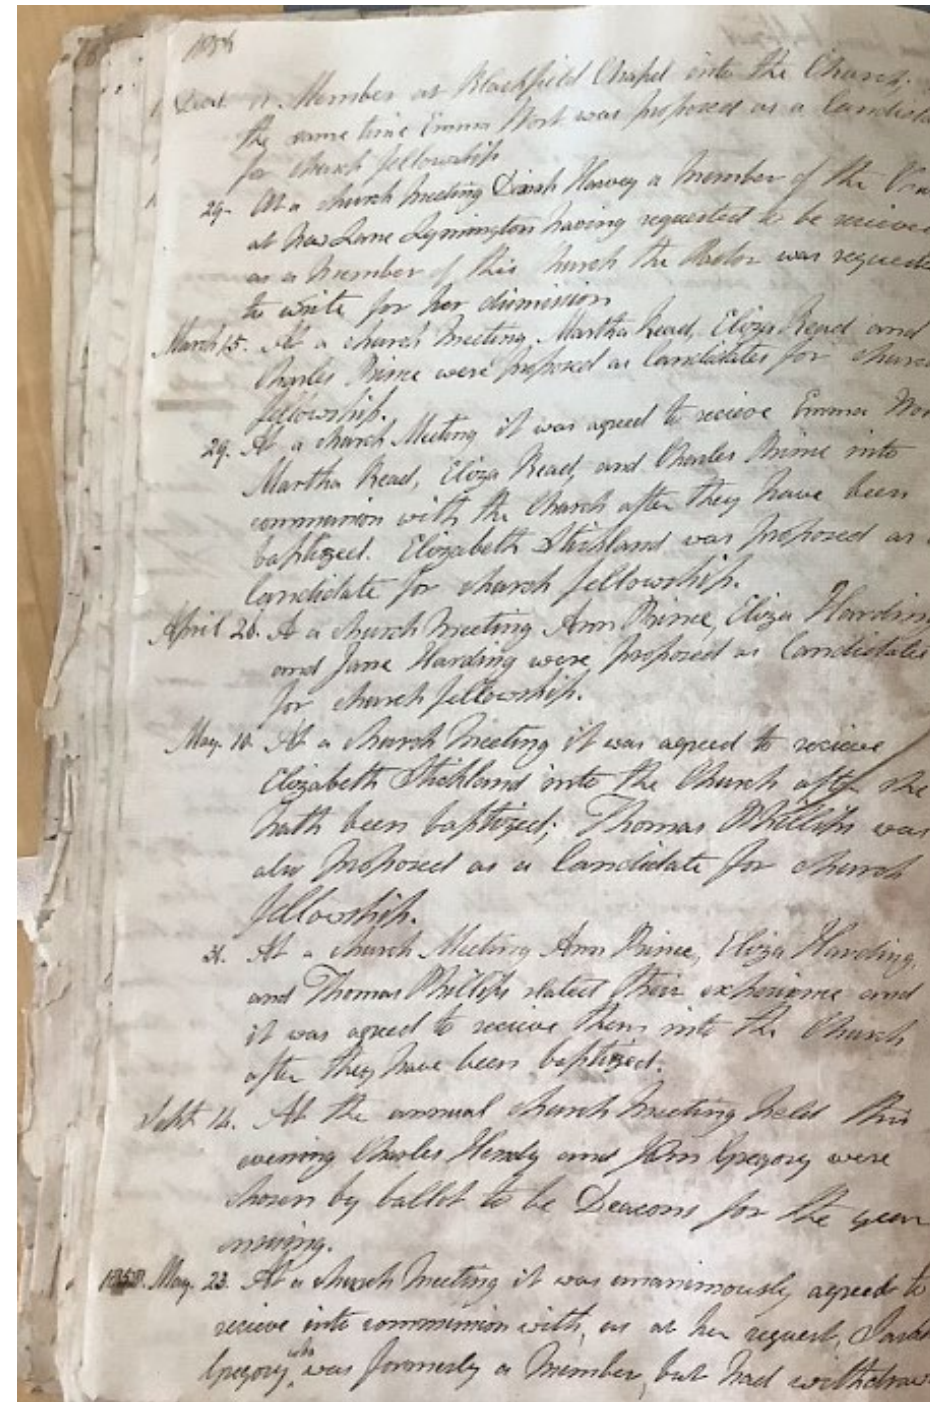 185
a Member at Blackfield Chapel into the Church.
the same time Emma was proposed as a Candidate
for church fellowship
29. At a church Meeting Dinah Harvey a Member of the
at New Lane Lymington having requested to be recieved
as a Member of this church the Pastor was requested
to write for her dismission
March 15. At a church Meeting, Martha Read, Eliza Read and
Charles Prince were proposed as Candidates for church
fellowship.
29. At a church Meeting it was agreed to recieve Emma
Martha Read, Eliza Read, and Charles Prince into
communion with the Church after they have been
baptized. Elizabeth Stickland was proposed as a
Candidate for church fellowship.
April 26. At a church Meeting Ann Prince, Eliza Harding
and Jane Harding were proposed as Candidates
for church fellowship.
May. 10. At a church Meeting it was agreed to recieve
Elizabeth Stickland into the Church after she
hath been baptized; Thomas Phillips was
also proposed as a Candidate for church
fellowship.
31. At a church Meeting Ann Prince, Eliza Harding,
and Thomas Phillips stated their experience and
it was agreed to recieve them into the Church
after they have been baptized.
Sept 14. At the annual church Meeting held this
evening Charles Hendy and John Gregory were
chosen by ballot to be Deacons for the year
ensuing.
May. 23. At a church Meeting it was unanimously agreed to
recieve into communion with us at her request,
Gregory who was formerly a Member, but had withdrawn